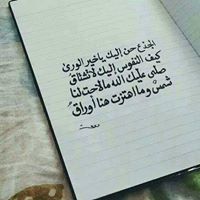 الجذع حن إليك يا خير الورى
كيف النفوس إليك لا تشتاق
صلى عليك الله ما لاحت لنا
شمس وما اهتزت هنا أوراق